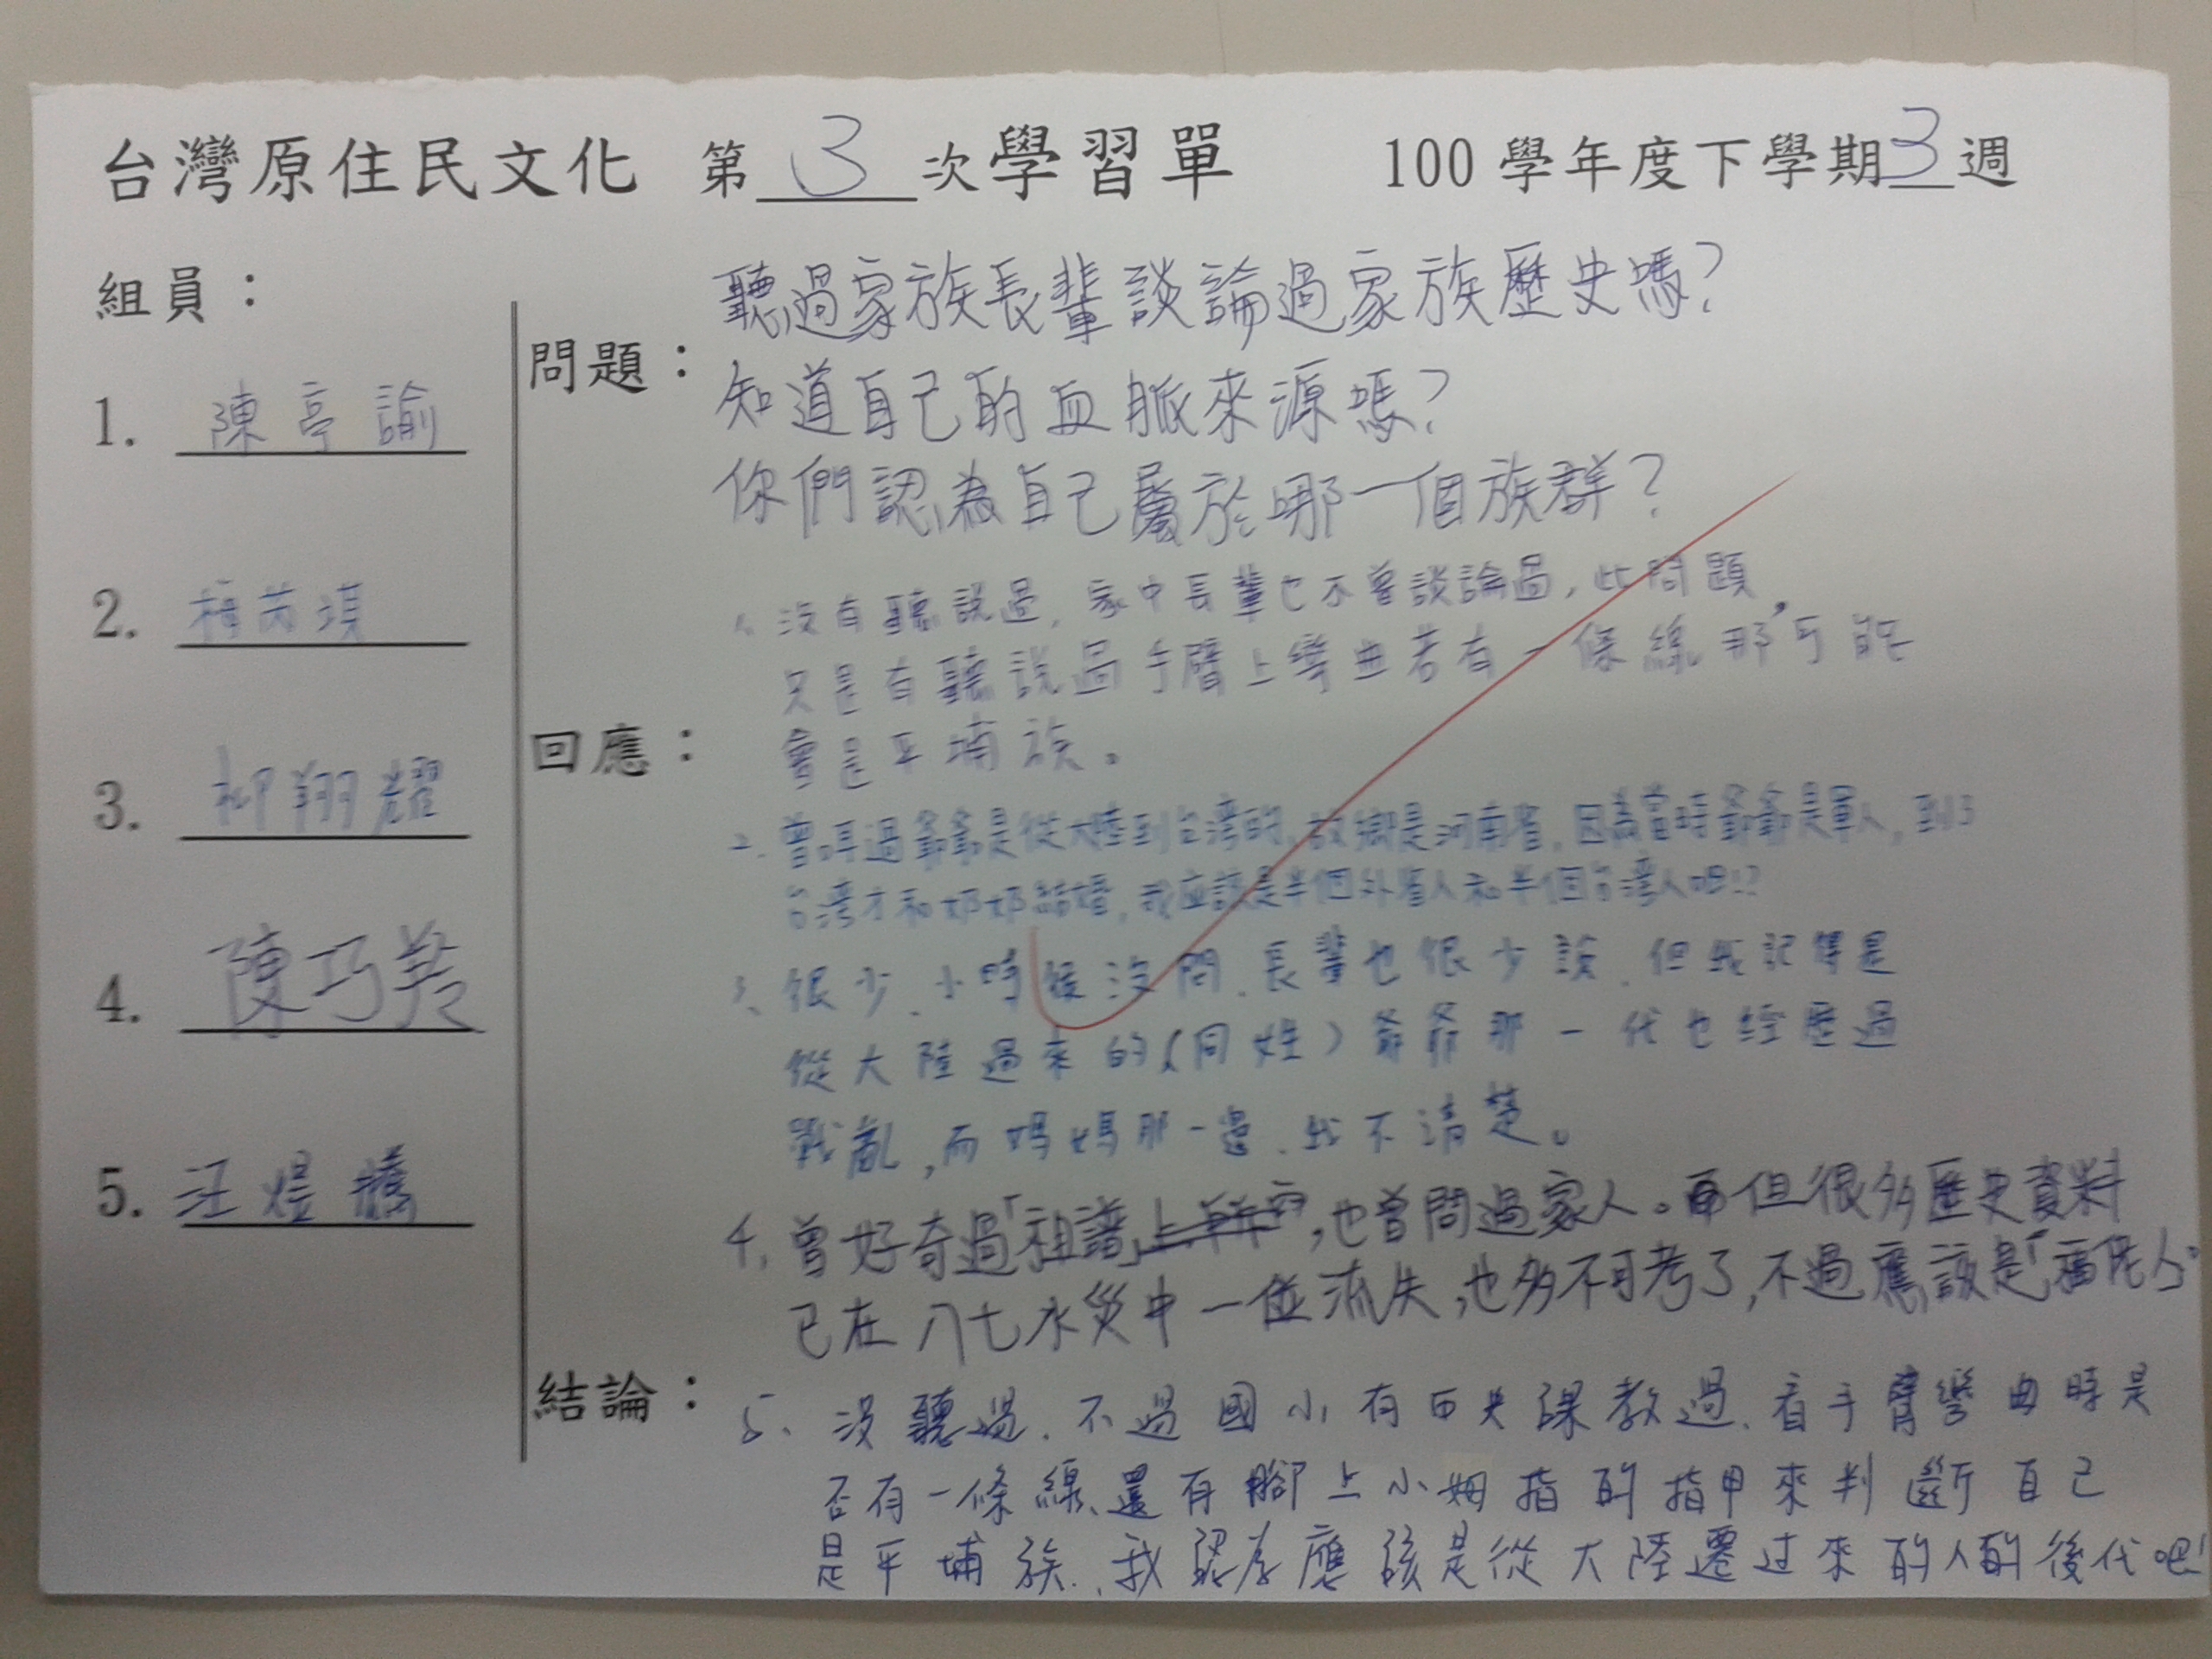 台灣原住民文化 第3次學習單 100學年度下學期3週
組員：
1. 陳亭諭
2. 芮琪
3. 柳翔耀
4. 陳巧羚
5. 汪煜
問題：
聽過家族長輩談論過家族歷史嗎？
知道自己的血脈來源嗎？
你們認為自己屬於哪一個族群？
回應：
1. 沒有聽說過，家中長輩也不曾談論過，此問題，
只是有聽說過手臂上彎曲若有一條線那可能
會是平埔族。
2. 曾耳過爺爺是從大陸到台灣的，故鄉是河南省，因為當時爺爺是軍人，到了
台灣才和奶奶結婚，我应該是半個外省人和半個台灣人吧!?
3、很少、小時候沒問、長輩也很少談、但我記得是
從大陸過來的(同姓)爺爺那一代也經歷過
戰亂，而媽媽那一邊、我不清楚。
4. 曾好奇過「祖譜」，也曾問過家人。但很多歷史資料
已在八七水災中一並流失，也多不可考了，不過應該是「福佬人」。
結論：
5、沒聽過、不過國小有母史課教過、看手臂彎曲時是
否有一條線、還有腳上小姆指的指甲來判斷自己
是平埔族、我認為應該是從大陸遷过來的人的後代吧!